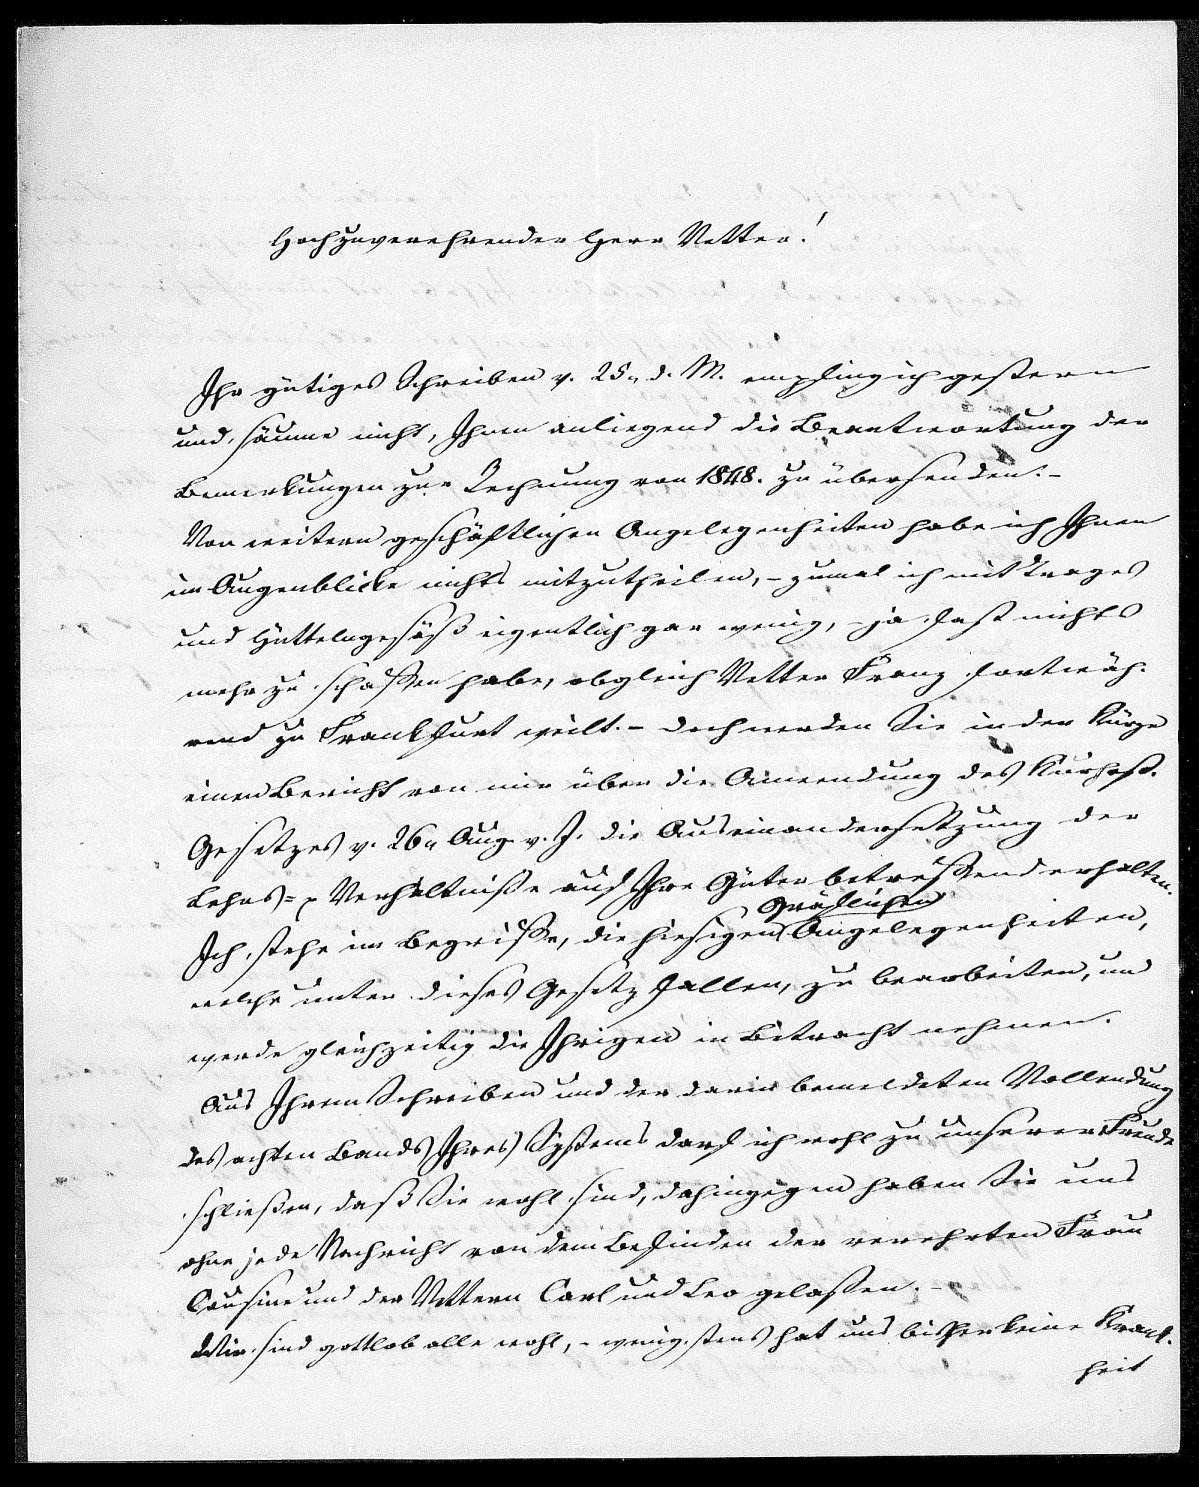 Hochzuverehrender Herr Vetter!
Ihr gütiges Schreiben v. 25. d. M. empfing ich gestern
und säume nicht, Ihnen anliegend die Beantwortung der
Bemerkungen zur Rechnung von 1848. zu übersenden. –
Von weitern geschäftlichen Angelegenheiten habe ich Ihnen
im Augenblicke nichts mitzutheilen, – zumal ich mit Trages
und Hüttelngesäß eigentlich gar wenig, – ja fast nichts
mehr zu schaffen habe, obgleich Vetter Franz fortwäh-
rend zu Frankfurt weilt. – Doch werden Sie in der Kürze
einen Bericht von mir über die Anwendung des Kurhess.
Gesetzes v. 26. Aug. v. J. die Auseinandersetzung der
Lehns= Verhältniße auf Ihre Güter betreffend erhalten.
Ich stehe im Begriffe, die hiesigen Gräflichen Angelegenheiten,
welche unter dieses Gesetz fallen, zu bearbeiten, und
werde gleichzeitig die Ihrigen in Betracht nehmen.
Aus Ihrem Schreiben und der darin bemeldeten Vollendung
des achten Bands Ihres Systems darf ich wohl zu unserer Freude
schließen, daß Sie wohl sind, dahingegen haben Sie uns
ohne jede Nachricht von dem Befinden der verehrten Frau
Cousine und der Vettern Carl und Leo gelaßen. –
Wir sind gottlob alle wohl, – wenigstens hat uns bisher keine Krank-
heit